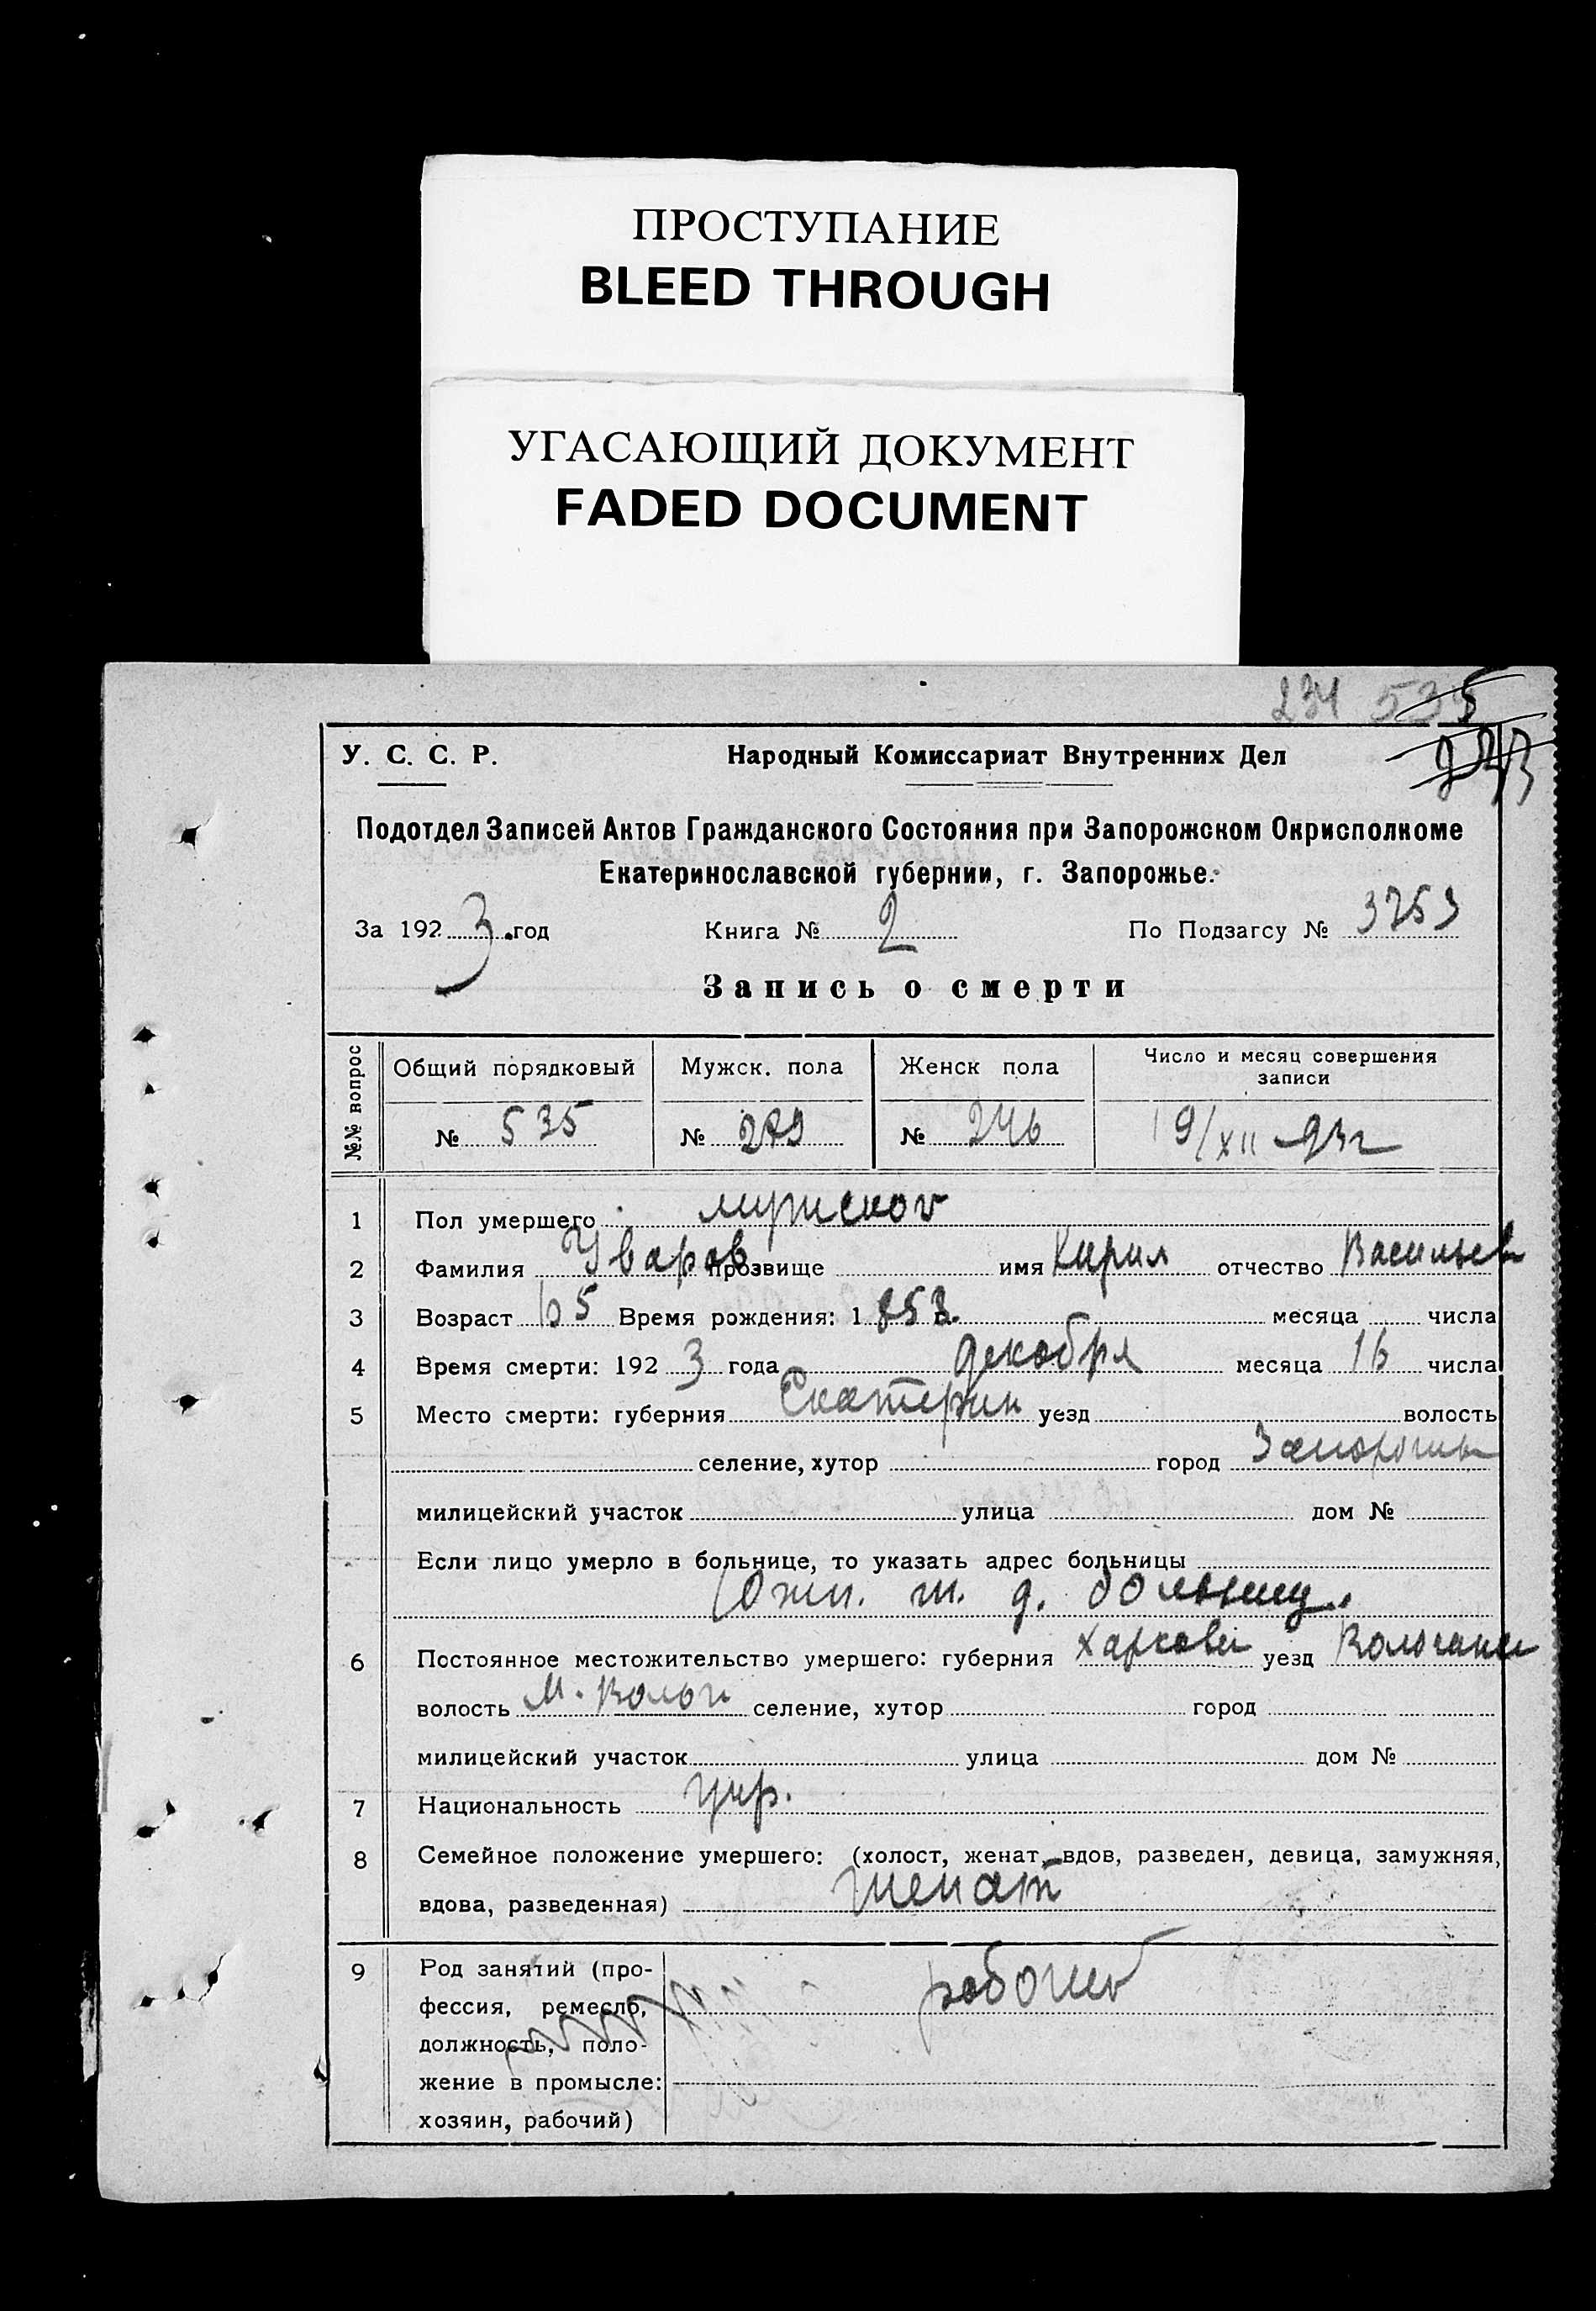 ПРОСТУПАНИЕ
BLEED THROUGH
УГАСАЮЩИЙ ДОКУМЕНТ
FADED DOCUMENT
234 535
У. С. С. Р. Народный Комиссариат Внутренних Дел
Подотдел Записей Актов Гражданского Состояния при Запорожском Окрисполкоме
Екатеринославской губернии, г. Запорожье.
За 1923 год Книга № 2 По Подзагсу № 3753
Запись о смерти
№№ вопрос Общий порядковый Мужск. пола Женск пола Число и месяц совершения записи
№ 535 № 289 № 246 19/XII-23г
1 Пол умершего мужской
2 Фамилия Уваров прозвище имя Кирил отчество Васильев
3 Возраст 65 Время рождения: 1853. месяца числа
4 Время смерти: 1923 года декабря месяца 16 числа
5 Место смерти: губерния Екатерин уезд волость
селение, хутор город Запорожье
милицейский участок улица дом №
Если лицо умерло в больнице, то указать адрес больницы
Южн. ж. д. больниц.
6 Постоянное местожительство умершего: губерния Харькови уезд
волость селение, хутор город
милицейский участок улица дом №
7 Национальность укр.
8 Семейное положение умершего: (холост, женат, вдов, разведен, девица, замужняя,
вдова, разведенная) женат
9 Род занятий (про-
фессия, ремесло, рабочий
должность, поло-
жение в промысле:
хозяин, рабочий)